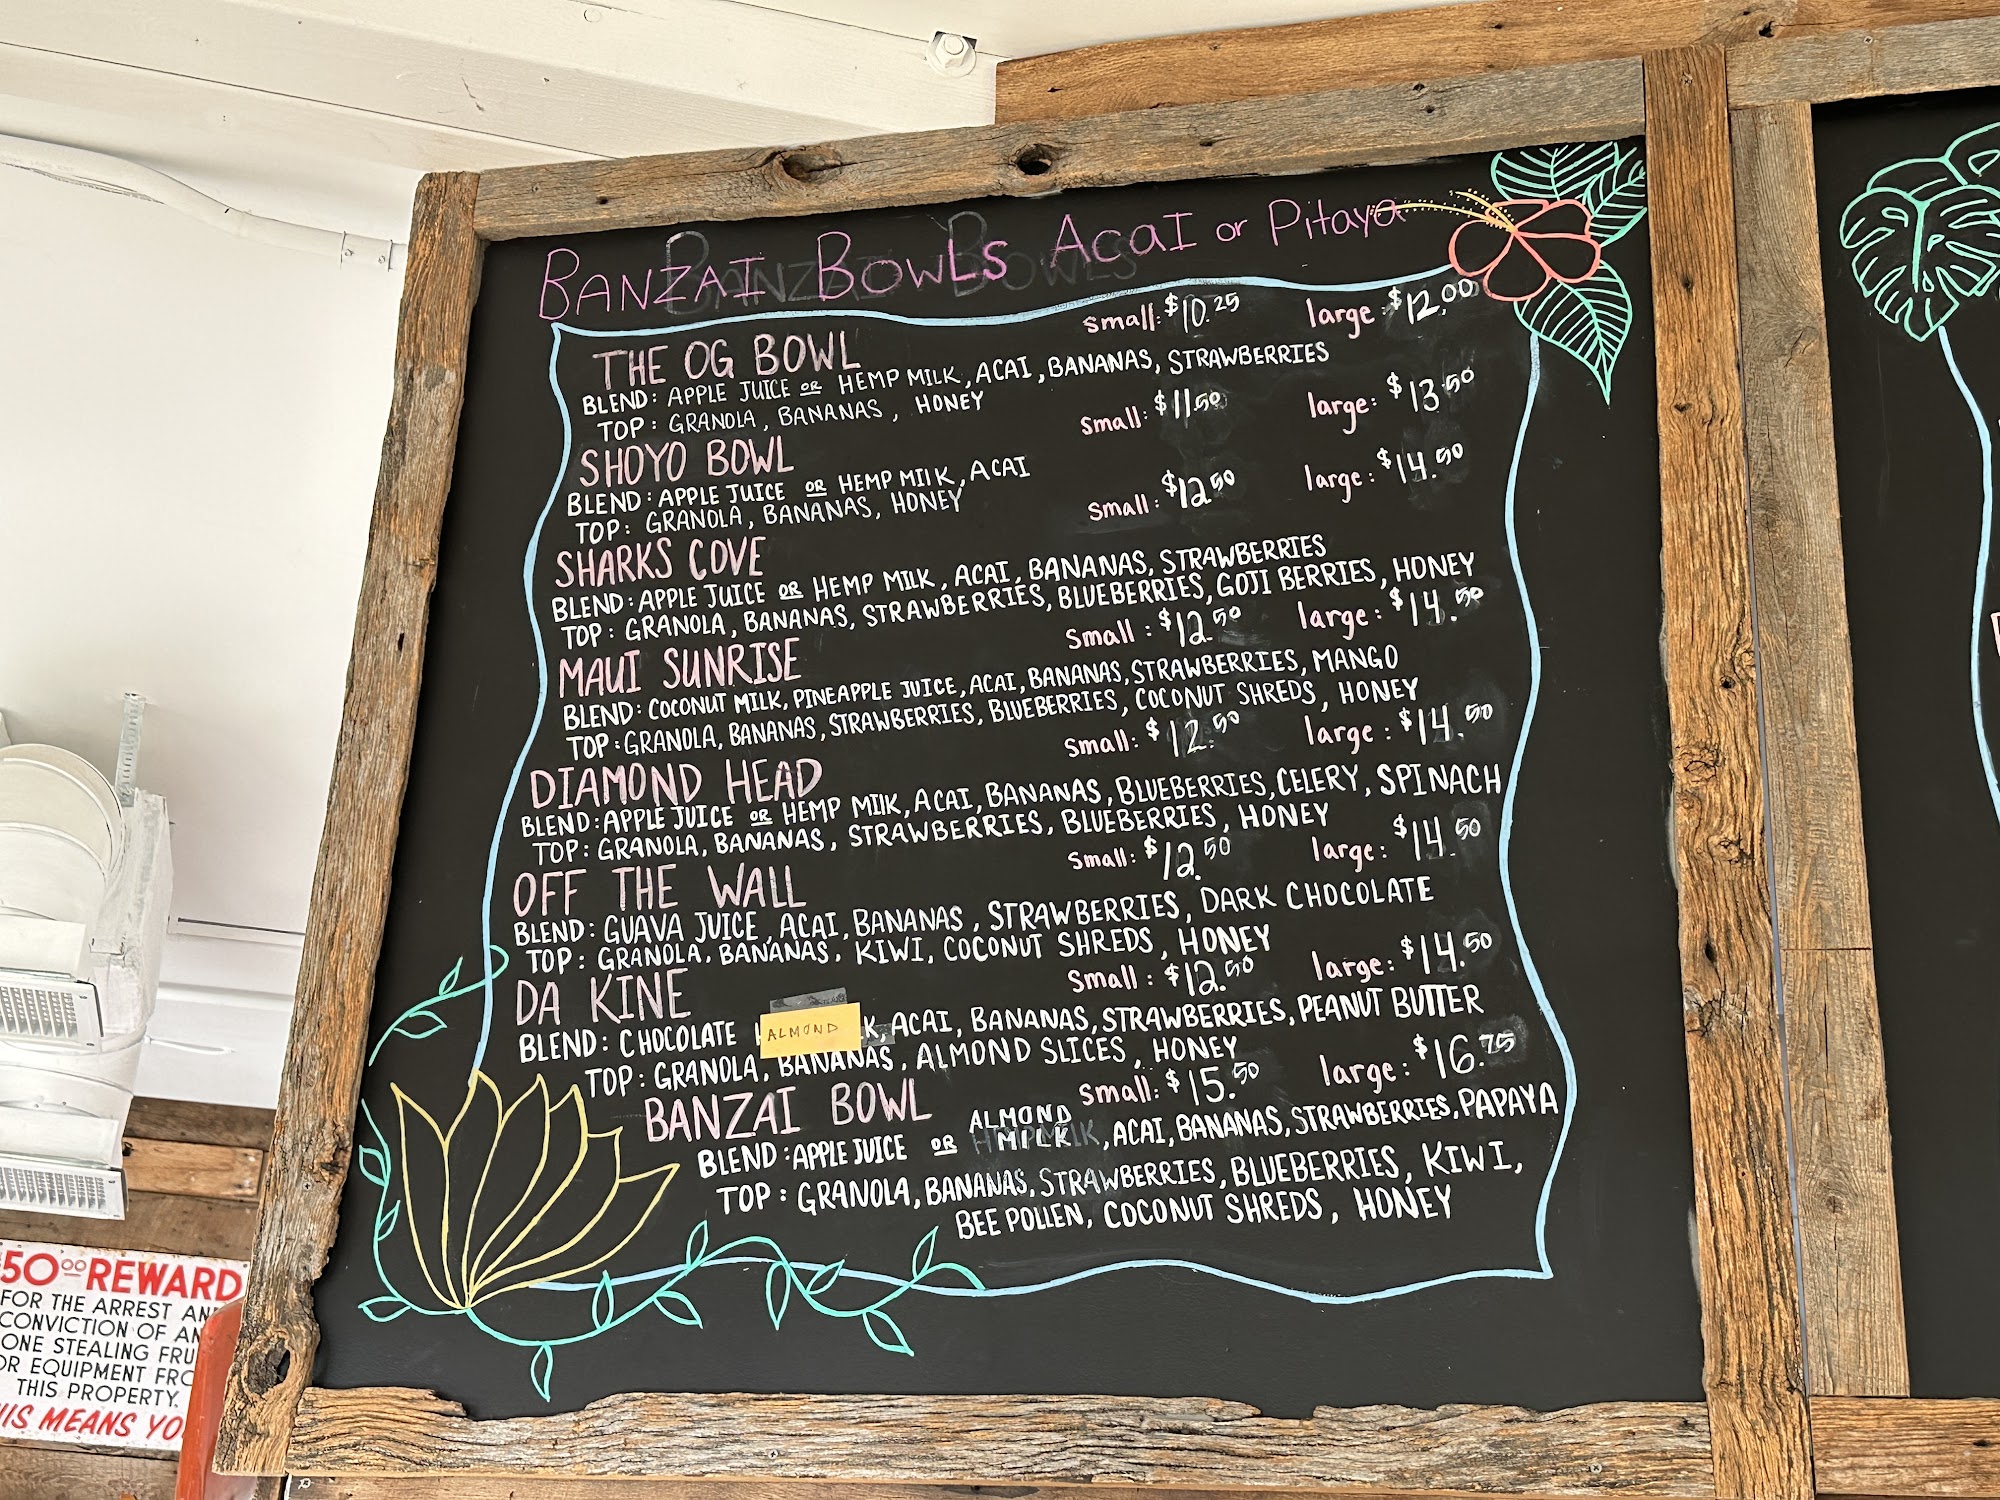 BANZAI BOWLS ACAI or Pitaya
THE OG BOWL small: $10.25 large: $12.00
BLEND: APPLE JUICE OR HEMP MILK, ACAI, BANANAS, STRAWBERRIES
TOP: GRANOLA, BANANAS, HONEY
SHOYO BOWL small: $11.50 large: $13.50
BLEND: APPLE JUICE OR HEMP MILK, ACAI
TOP: GRANOLA, BANANAS, HONEY
SHARKS COVE small: $12.50 large: $14.50
BLEND: APPLE JUICE OR HEMP MILK, ACAI, BANANAS, STRAWBERRIES
TOP: GRANOLA, BANANAS, STRAWBERRIES, BLUEBERRIES, GOJI BERRIES, HONEY
MAUI SUNRISE small: $12.50 large: $14.50
BLEND: COCONUT MILK, PINEAPPLE JUICE, ACAI, BANANAS, STRAWBERRIES, MANGO
TOP: GRANOLA, BANANAS, STRAWBERRIES, BLUEBERRIES, COCONUT SHREDS, HONEY
DIAMOND HEAD small: $12.50 large: $14.50
BLEND: APPLE JUICE OR HEMP MILK, ACAI, BANANAS, BLUEBERRIES, CELERY, SPINACH
TOP: GRANOLA, BANANAS, STRAWBERRIES, BLUEBERRIES, HONEY
OFF THE WALL small: $12.50 large: $14.50
BLEND: GUAVA JUICE, ACAI, BANANAS, STRAWBERRIES, DARK CHOCOLATE
TOP: GRANOLA, BANANAS, KIWI, COCONUT SHREDS, HONEY
DA KINE small: $12.50 large: $14.50
BLEND: CHOCOLATE ALMOND K, ACAI, BANANAS, STRAWBERRIES, PEANUT BUTTER
TOP: GRANOLA, BANANAS, ALMOND SLICES, HONEY
BANZAI BOWL small: $15.50 large: $16.75
BLEND: APPLE JUICE OR ALMOND MILK, ACAI, BANANAS, STRAWBERRIES, PAPAYA
TOP: GRANOLA, BANANAS, STRAWBERRIES, BLUEBERRIES, KIWI,
BEE POLLEN, COCONUT SHREDS, HONEY
50.00 REWARD
FOR THE ARREST AN
CONVICTION OF AN
ONE STEALING FRU
OR EQUIPMENT FRO
THIS PROPERTY.
IS MEANS YO